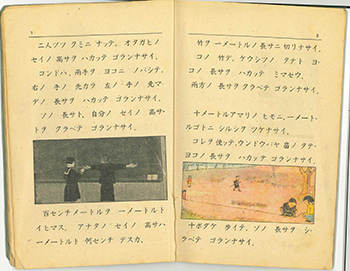 二人ヅツ クミニ ナッテ、オタガヒノ
セイノ 高サヲ ハカッテ ゴランナサイ。
コンドハ、兩手ヲ ヨコニ ノバシテ、
右ノ 手ノ 先カラ 左ノ 手ノ 先マ
デノ 長サヲ ハカッテ ゴランナサイ。
ソノ 長サト、自分ノ セイノ 高サ
トヲ クラベテ ゴランナサイ。
百センチメートルヲ 一メートルト
イヒマス。 アナタノ セイノ 高サハ
一メートル 何センチ デスカ。
竹ヲ 一メートルノ 長サニ 切リナサイ。
コノ 竹デ、ケウシツノ タテト ヨ
コノ 長サヲ ハカッテ ミマセウ。
兩方ノ 長サヲ クラベテ ゴランナサイ。
十メートルアマリノ ヒモニ、一メート
ルゴトニ シルシヲ ツケナサイ。
コレヲ 使ッテ、ウンドウバヤ 畠ノ タテ・
ヨコノ 長サヲ ハカッテ ゴランナサイ。
十ポダケ アルイテ、ソノ 長サヲ シ
ラベテ ゴランナサイ。